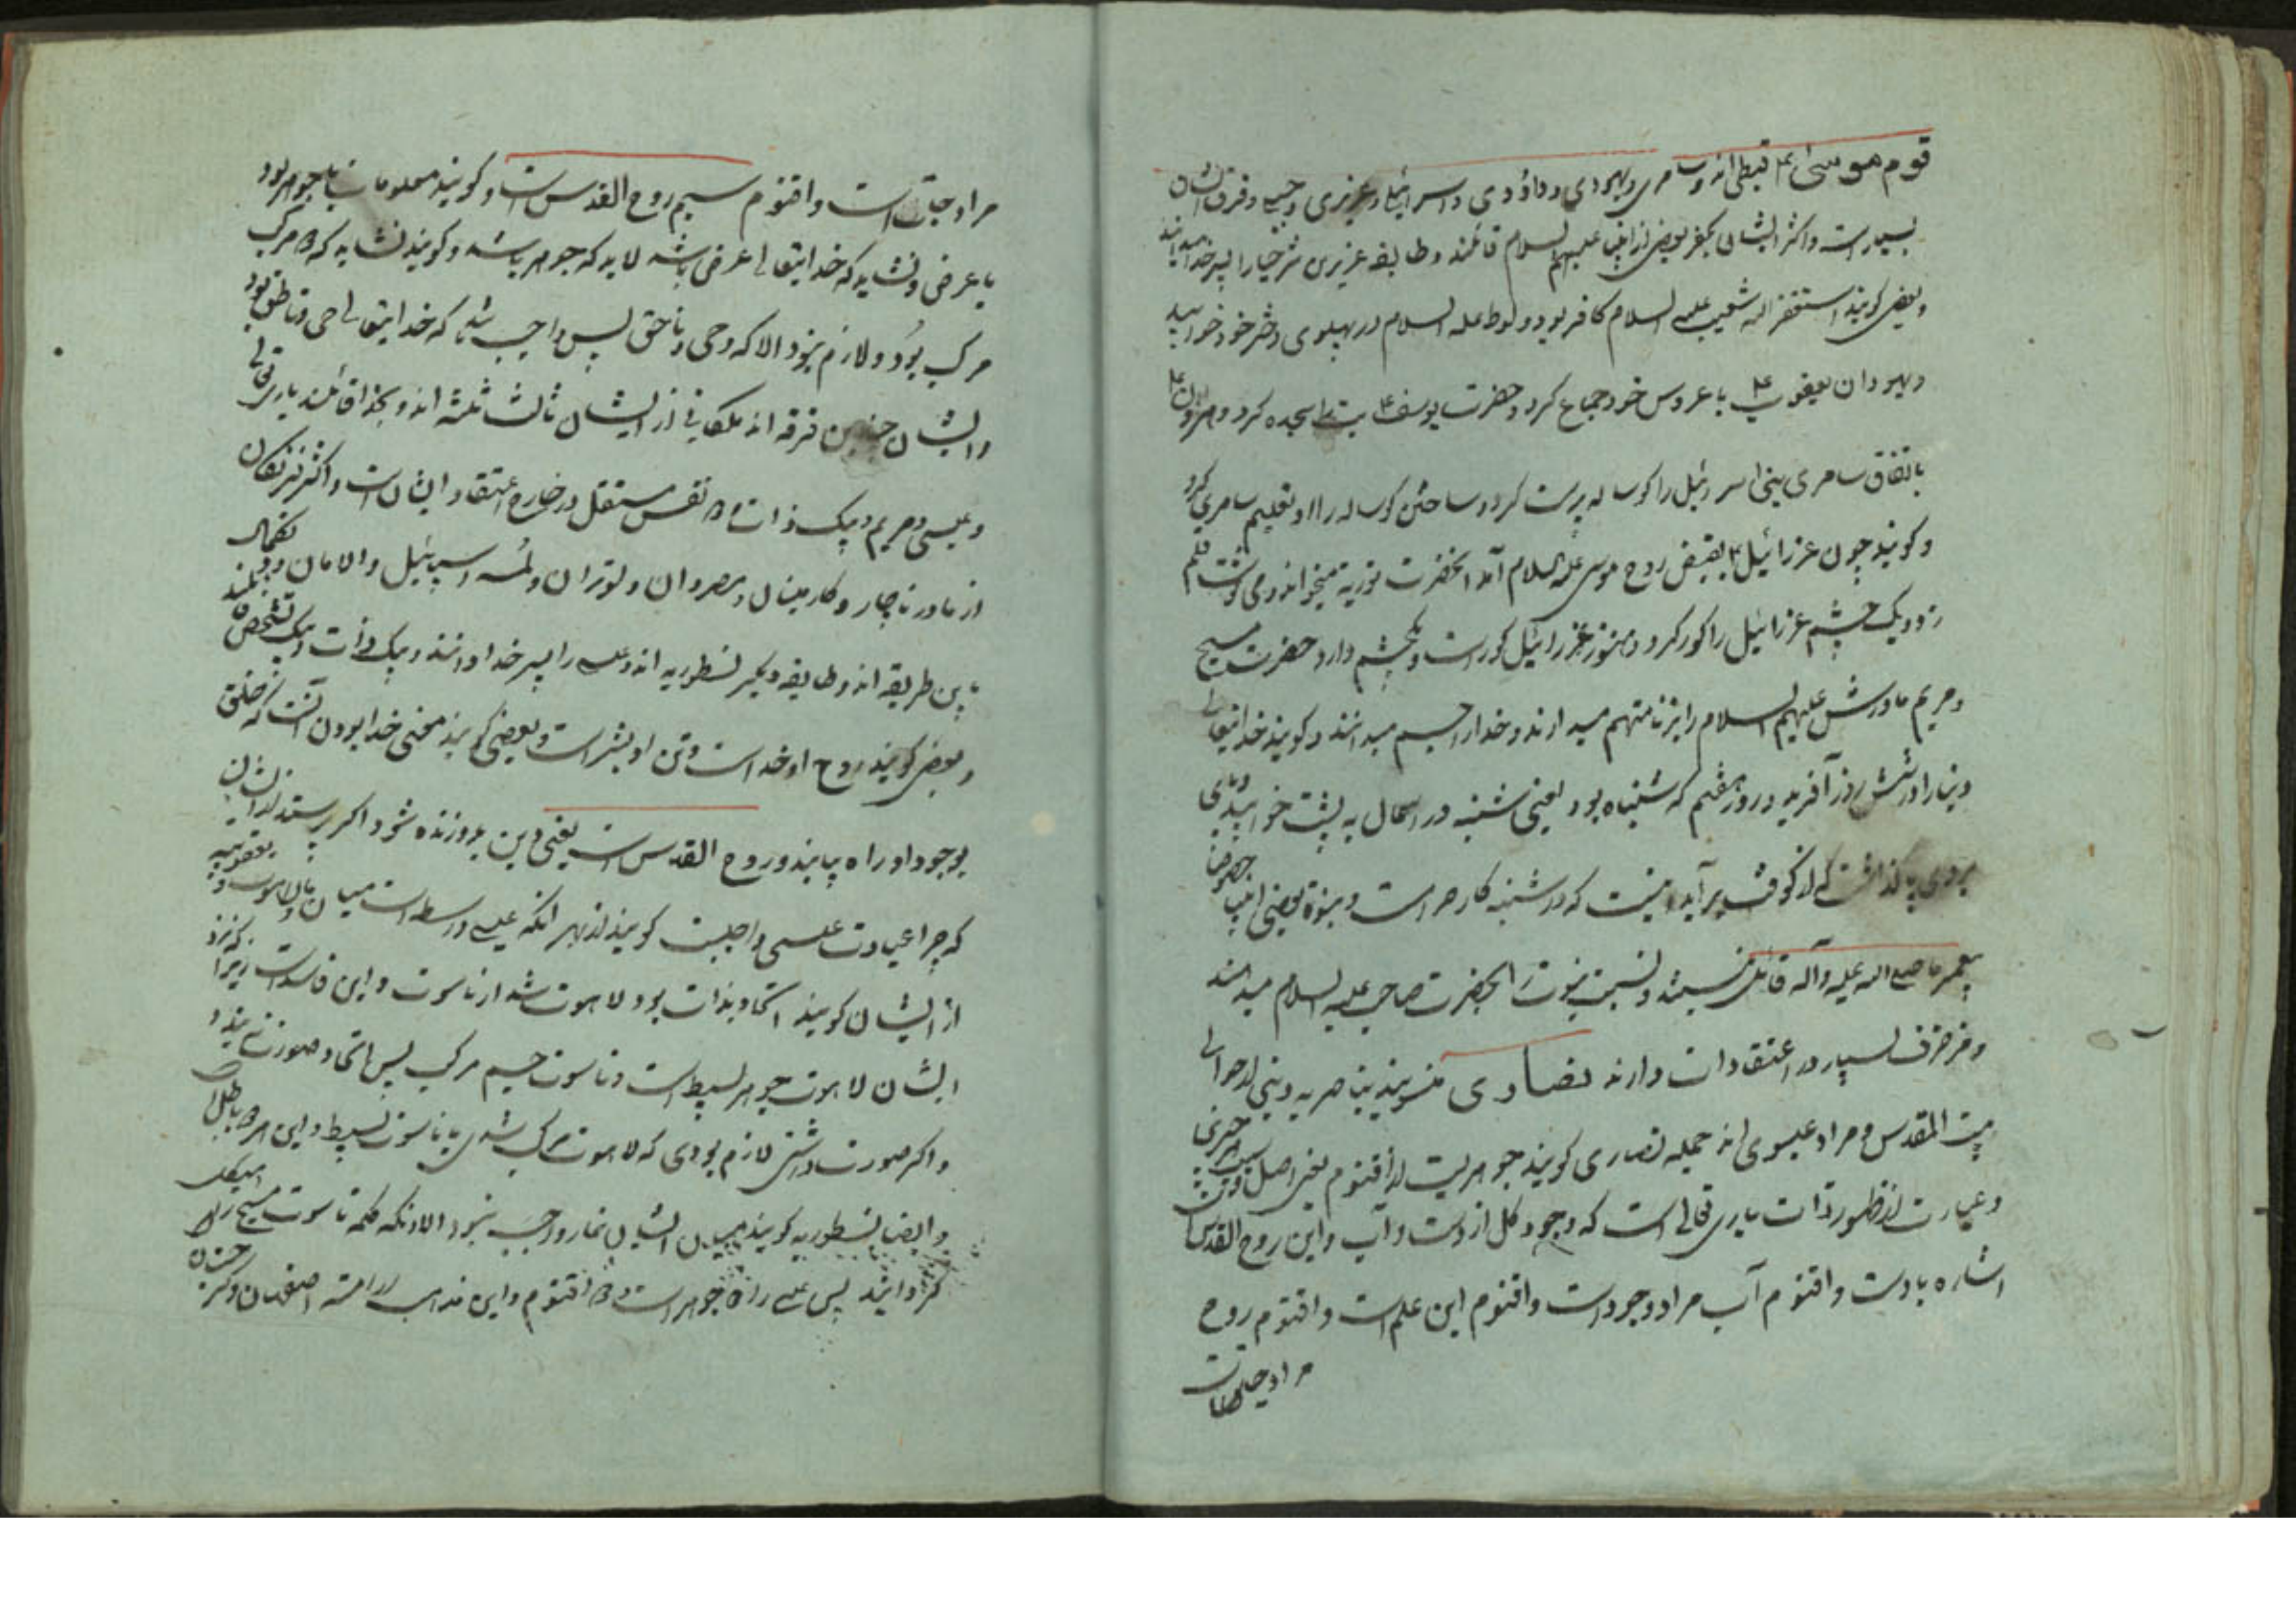 قوم موسی ع قبطی اند و سامری و یهودی و داؤدی و اسرائیلی و عزیزی و فرق ایشان
بسیار است و اکثر ایشان بکفر بعضی از انبیا علیهم السلام قائلند و طایفه عزیزی عزیر را پسر خدا میدانند
و بعضی کویند استغفر الله شعیب علیه السلام کافر بود و لوط علیه السلام در پهلوی دختر خود خوابید
و یهودان یعقوب ع با عروس خود جماع کرد و حضرت یوسف ع بت را سجده کرد و هرون ع
باتفاق سامری بنی اسرائیل را کوساله پرست کرد و ساختن کوساله را او تعلیم سامری کرد
و کویند چون عزرائیل بقبض روح موسی علیه السلام آمد آنحضرت توریة میخواند و می نوشت قلم
زد و یک چشم عزرائیل را کور کرد و هنوز عزرائیل کور است و یکچشم دارد حضرت مسیح
و مریم مادرش علیهم السلام را بزنا متهم میدارند و خدا را جسم میدانند و کویند خدایتعالی
دنیا را در شش روز آفرید در روز هفتم که شنباه بود یعنی شنبه در آسمان به پشت خوابید و پای
بر روی پا کذاشت که از کوفت برآید و نیست که در شنبه کار حرامست و بنبوة بعضی انبیا خصوصا
پیغمبر ما صلی الله علیه و آله قائل نیستند و نسبت نبوت آنحضرت صاحب علیه السلام میدانند
و مزخرف بسیار در اعتقادات دارند نصاری منسوبند بناصریه و بنی از حوالی
بیت المقدس و مراد عیسوی اند جمله نصاری کویند جوهریست از اقنوم یعنی اصل
و عبارت از ظهور ذات باری تعالی است که وجود کل ازوست و آب و ابن روح القدس
اشاره بادست و اقنوم آب مراد وجود است و اقنوم ابن علم است و اقنوم روح
مراد حیات
مراد حیات است و اقنوم سیم روح القدس است و کویند معلومات یا جوهر بود
یا عرض و نشاید که خدایتعالی عرض باشد لابد که جوهر باشد و کویند نشاید که مرکب
مرکب بود و لازم نبود الا که وحی ناحق پس واجب شد که خدایتعالی حی و ناطق بود
و ایشان چندین فرقه اند ملکایی از ایشان ثالث ثلثة اند و بخدا قائلند باری تعالی
و عیسی و مریم و یک ذات نفس مستقل در خارج اعتقاد ایشان است و اکثر فرنکان
از مادر ناچار و کارمینال و مصروان و لوتران و اسپانیل و الامان و
باین طریقه اند و طایفه دیکر نسطوریه اند و عیسی را پسر خدا دانند و یک ذات و یک تشخص
و بعضی کویند روح او خداست و تن او بشر است و بعضی کویند معنی خدا بودن آنست که خلق
بوجود او راه یابند و روح القدس است یعنی دین بدو زنده شود اکر پرسند از ایشان
که چرا عبادت عیسی واجبست کویند از بهر آنکه عیسی واسطه است میان ما و لاهوت و یعقوبیه
از ایشان کویند اتحاد بذات بود لاهوت شد از ناسوت و این فاسد است زیرا که نزد
ایشان لاهوت جوهر بسیط است و ناسوت جسم مرکب پس اتحاد صورت نه بندد
و اکر صورت داشتی لازم بودی که لاهوت مرکب شدی یا ناسوت بسیط و این هر دو باطل
و ایضا نسطوریه کویند میان ایشان نماز واجب نبود الا آنکه کلمه ناسوت مسیح را هیکل
کردانید پس عیسی را دو جوهر است و دو اقنوم و این مذاهب ارامنه اصفهان و کرجستان